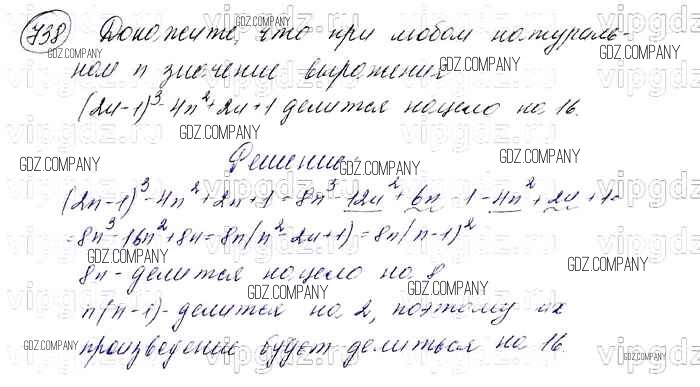 738 Докажите, что при любом натураль-
ном n значение выражения
(2n-1)³-4n²+2n+1 делится нацело на 16.
Решение
(2n-1)³-4n²+2n+1=8n³-12n²+6n-1-4n²+2n+1=
=8n³-16n²+8n=8n(n²-2n+1)=8n(n-1)²
8n-делится нацело на 8
n(n-1)-делится на 2, поэтому их
произведение будет делиться на 16.
GDZ.COMPANY
vipgdz